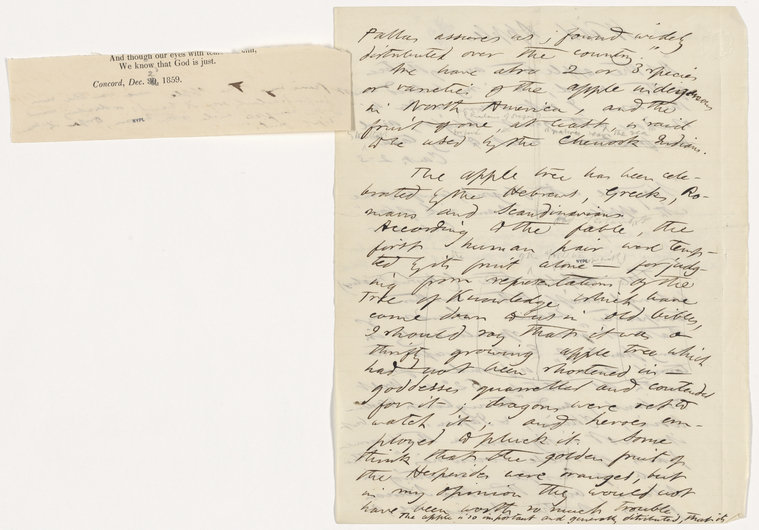 And though our eyes with
We know that God is just.
Concord, Dec. 1859.
NYPL
Pallas assures us, found widely
distributed over the country."
We have also 2 or 3 species
or varieties of the apple indigenous
in North America, and the
fruit of one, at least, is said
to be used by the Chenook Indians.
The apple tree has been cele-
brated by the Hebrews, Greeks, Ro-
mans and Scandinavians
According to the fable, the
first human pair were temp-
ted by its fruit alone — for judg-
NYPL
ing from representations of the
Tree of Knowledge which have
come down to us in old bibles,
I should say that it was a
thrifty growing apple tree which
had not been shortened in —
goddesses quarrelled and contended
for it; dragons were set to
watch it, and heroes em-
ployed to pluck it. Some
think that the golden fruit of
the Hesperides were oranges, but
in my opinion they would not
have been worth so much trouble
The apple is so important and generally distributed, that its